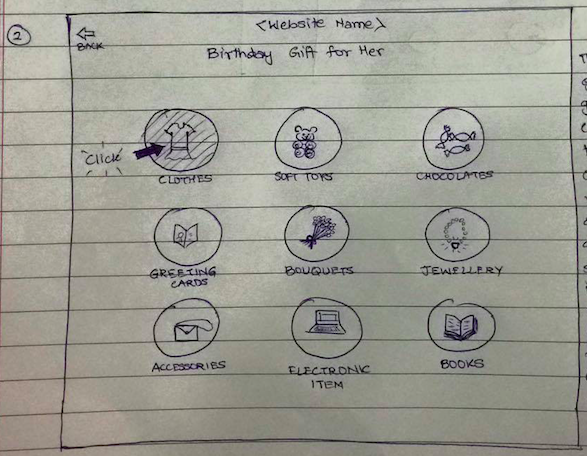 2
<Website Name>
BACK
Birthday Gift for Her
Click
CLOTHES
SOFT TOYS
CHOCOLATES
GREETING CARDS
BOUQUETS
JEWELLERY
ACCESSORIES
ELECTRONIC ITEM
BOOKS